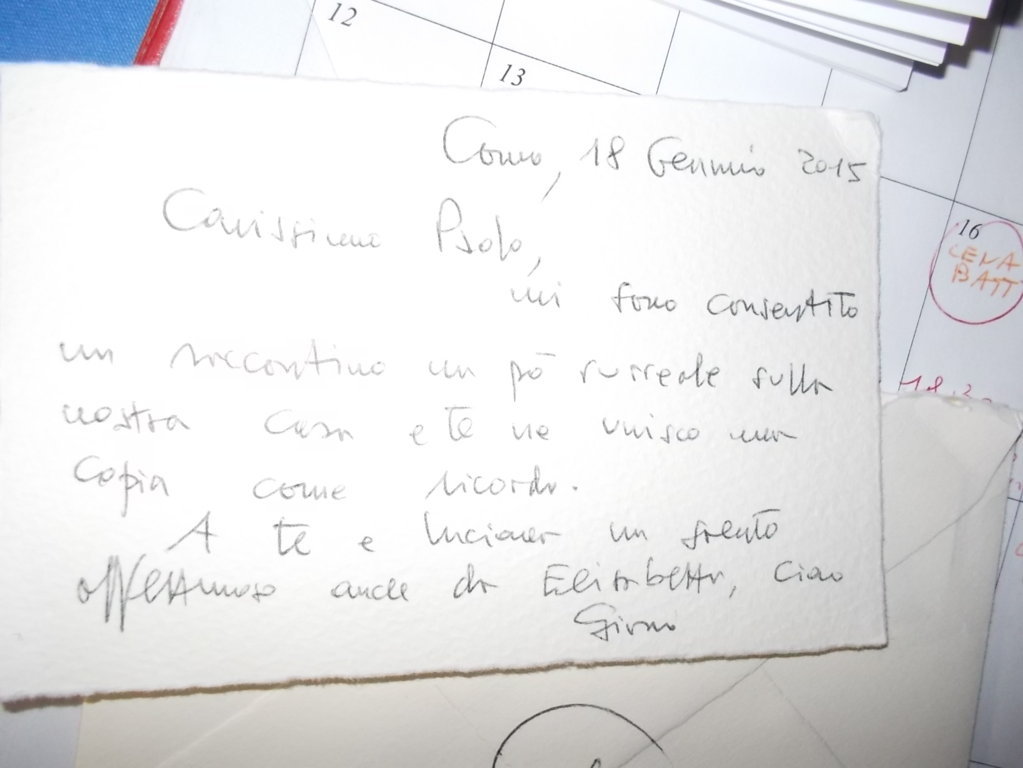 12
13
16
CENA
BATT
Como, 18 Gennaio 2015
Carissimo Paolo,
mi sono consentito
un raccontino un pò surreale sulla
nostra casa e te ne unisco una
copia come ricordo.
A te e Luciana un saluto
affettuoso anche da Elisabetta, ciao